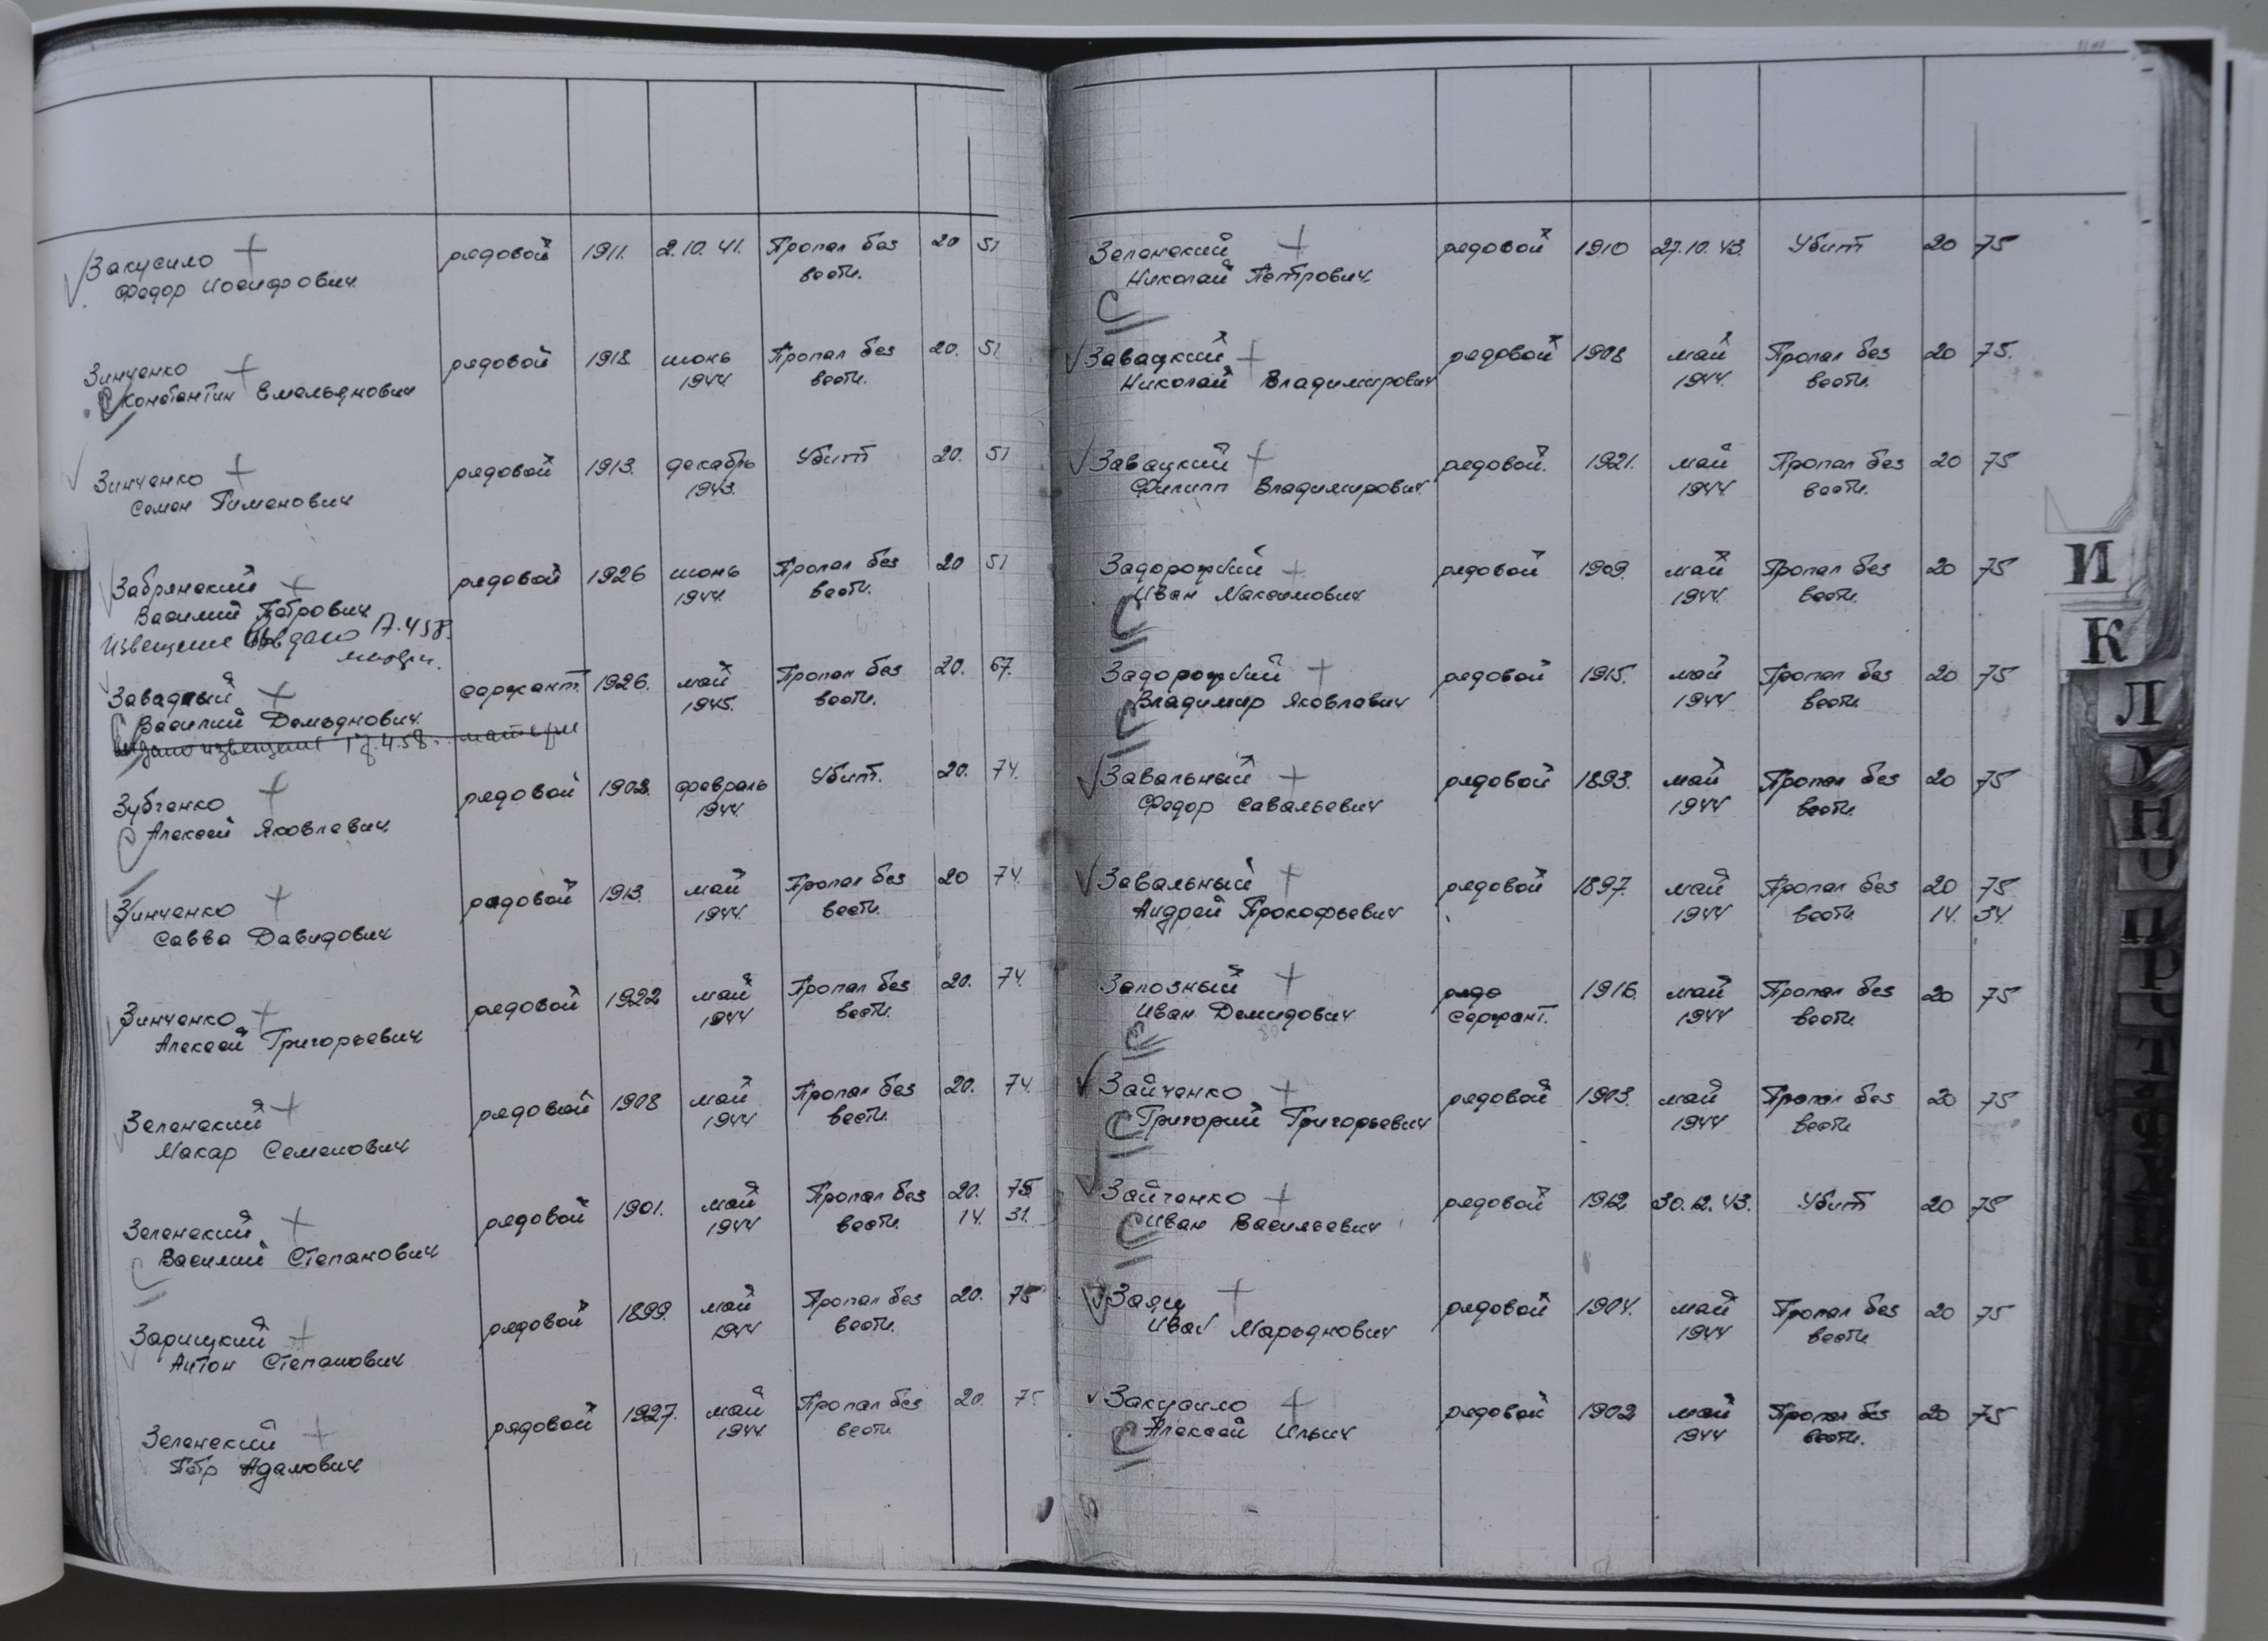 Закусило рядовой 1911. 2.10.41. Пропал без 20 51
Федор Иосифович вести.
Зинченко рядовой 1918 июнь Пропал без 20. 51
Константин Емельянович 1944 вести.
Зинченко рядовой 1913. декабрь Убит 20. 51
Семен Пименович 1943.
Забрянский рядовой 1926 июнь Пропал без 20 51
Василий Петрович 1944 вести.
Извещение выдано 17.4.58.
Завадный сержант. 1926. май Пропал без 20. 67.
Василий Демьянович. 1945. вести.
выдано извещение 17.4.58. матери
Зубченко рядовой 1908. февраль Убит. 20. 74.
Алексей Яковлевич 1944.
Зинченко рядовой 1913. май Пропал без 20 74.
Савва Давидович 1944. вести.
Зинченко рядовой 1922 май Пропал без 20. 74.
Алексей Григорьевич 1944 вести.
Зеленский рядовой 1908 май Пропал без 20. 74.
Макар Семенович 1944 вести.
Зеленский рядовой 1901. май Пропал без 20. 75
Василий Степанович 1944 вести. 14. 31.
Зарицкий рядовой 1899. май Пропал без 20. 75
Антон Степанович 1944 вести.
Зеленский рядовой 1927. май Пропал без 20. 75
Петр Адамович 1944 вести
Зеленский рядовой 1910 27.10.43. Убит 20 75
Николай Петрович.
С
Завацкий рядовой 1908 май Пропал без 20 75.
Николай Владимирович 1944. вести.
Завацкий рядовой. 1921. май Пропал без 20 75
Филипп Владимирович 1944 вести.
Задорожний рядовой 1909. май Пропал без 20 75
Иван Максимович 1944. вести.
С
Задорожний рядовой 1915. май Пропал без 20 75
Владимир Яковлевич 1944 вести.
С
Завальный рядовой 1893. май Пропал без 20 75
Федор Савельевич 1944 вести.
Завальный рядовой 1897. май Пропал без 20 75
Андрей Прокофьевич 1944 вести. 14. 34.
рядо 1916. май Пропал без 20 75
Иван Демидович сержант. 1944 вести.
Зайченко рядовой 1903. май Пропал без 20 75
С Григорий Григорьевич 1944 вести
Зайченко рядовой 1912 30.12.43. Убит 20 75
С Иван Васильевич
Заяц рядовой 1904. май Пропал без 20 75
Иван Марьянович 1944 вести
Закусило рядовой 1902 май Пропал без 20 75
С Алексей Ильич 1944 вести.
И
К
Л
Н
О
П
Р
Т